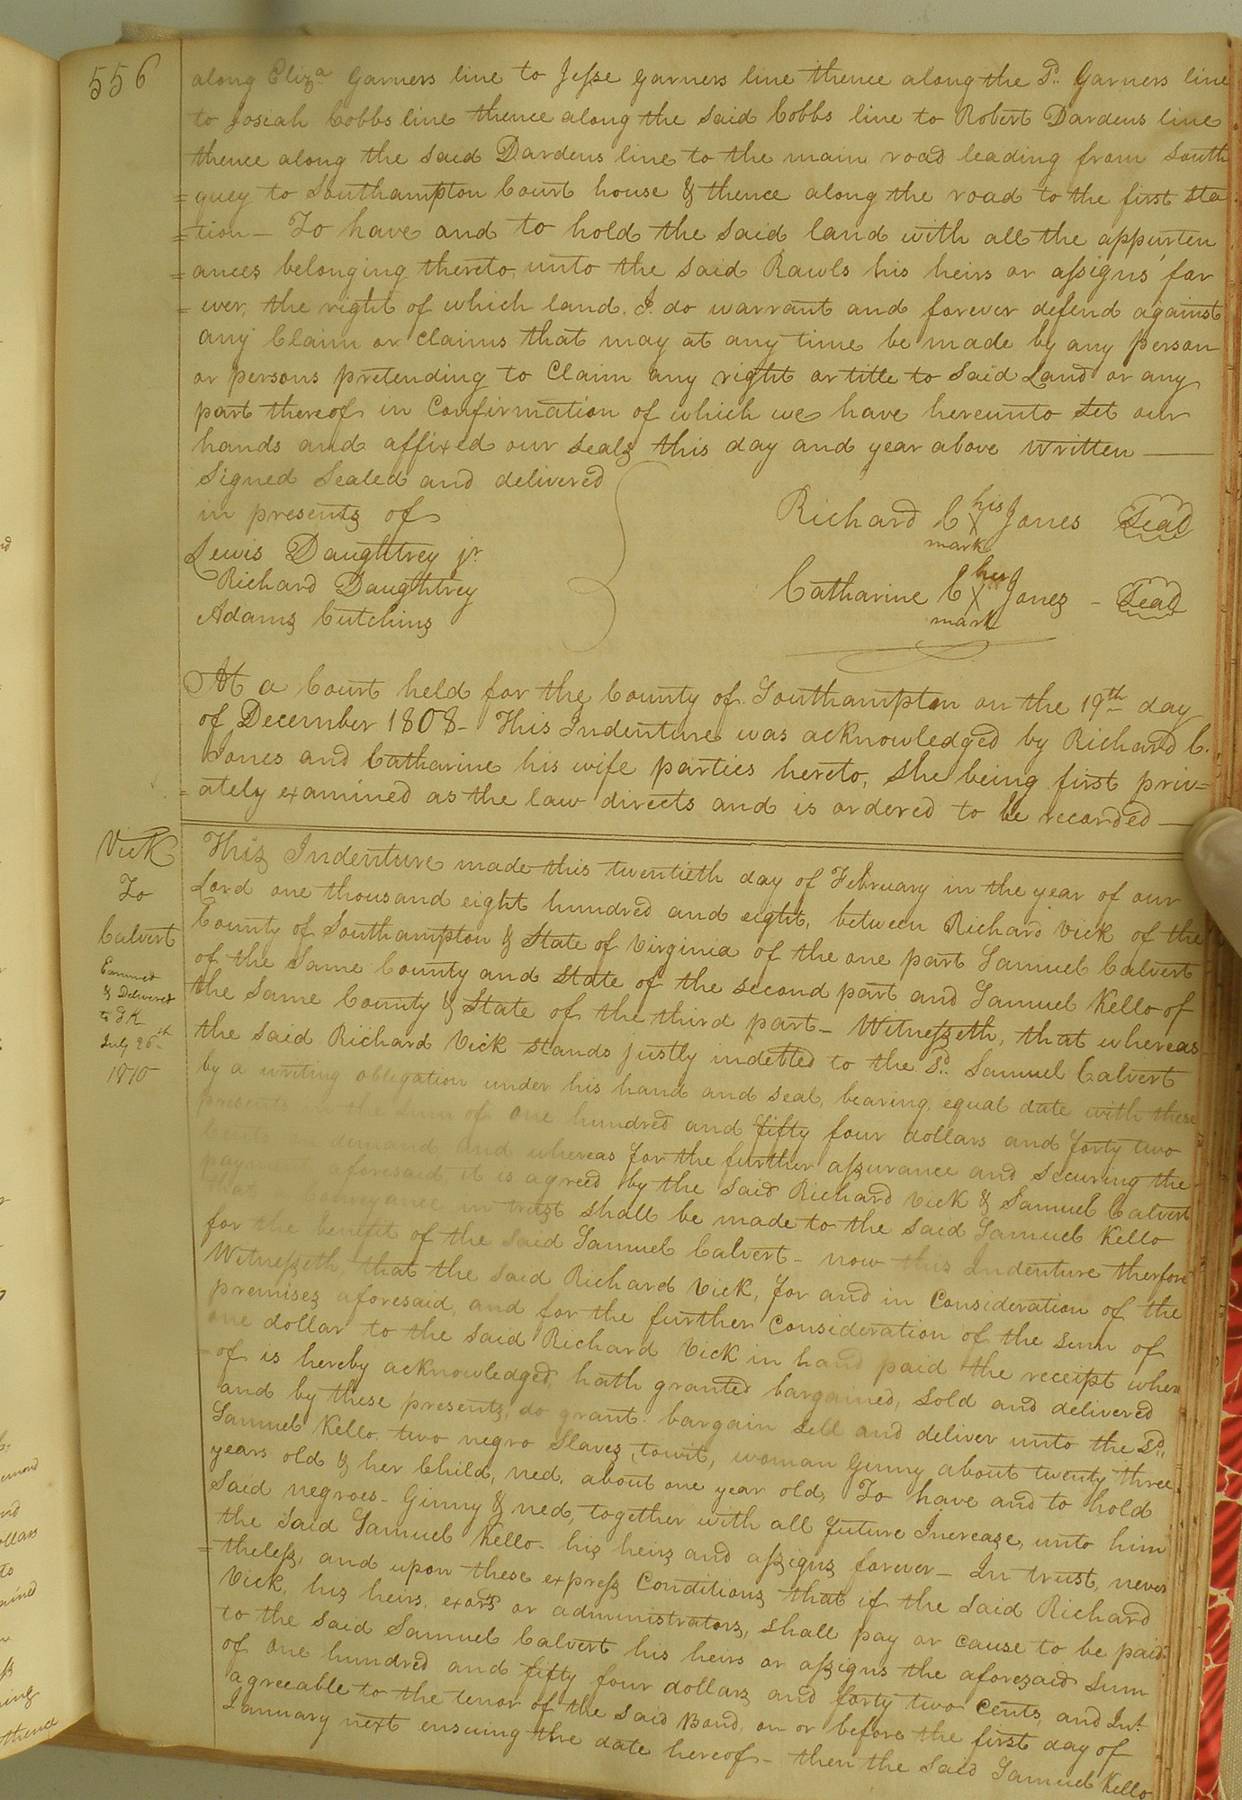 556
along Eliza Garners line to Jesse Garners line thence along the Sd. Garners line
to Josiah Cobbs line thence along the said Cobbs line to Robert Dardens line
thence along the said Dardens line to the main road leading from South
=quey to Southampton Court house & thence along the road to the first sta
=tion — To have and to hold the said land with all the appurten
=ances belonging thereto, unto the said Rawls his heirs or assigns for
=ever, the right of which land, I do warrant and forever defend against
any Claim or claims that may at any time be made by any person
or persons pretending to Claim any right or title to said Land or any
part thereof in Confirmation of which we have hereunto set our
hands and affixed our seals this day and year above written —
Signed Sealed and delivered
in presents of
Lewis Daughtrey jr
Richard Daughtrey
Adams Cutchins
Richard C his X mark Jones Seal
Catharine C her X mark Jones - Seal
At a Court held for the County of Southampton on the 19th day
of December 1808 - This Indenture was acknowledged by Richard C.
Jones and Catharine his wife parties hereto, she being first priv=
=ately examined as the law directs and is ordered to be recorded —
Vick
To
Calvert
Examined
& Delivered
to SK
July 26th
1810
This Indenture made this twentieth day of February in the year of our
Lord one thousand eight hundred and eight, between Richard Vick of the
County of Southampton & State of Virginia of the one part Samuel Calvert
of the Same County and state of the second part and Samuel Kello of
the Same County & State of the third part - Witnesseth, that whereas
the said Richard Vick stands justly indebted to the Sd. Samuel Calvert
by a writing obligation under his hand and seal, bearing equal date with these
presents the sum of one hundred and fifty four dollars and forty two
demand, and whereas for the further assurance and securing the
payment aforesaid, it is agreed by the said Richard Vick & Samuel Calvert
that Conveyance in trust shall be made to the said Samuel Kello
for the benefit of the said Samuel Calvert - now this Indenture therfore
Witnesseth, that the said Richard Vick, for and in Consideration of the
premises aforesaid, and for the further Consideration of the sum of
one dollar to the said Richard Vick in hand paid the receipt where
=of is hereby acknowledged, hath granted bargained, sold and delivered
and by these presents, do grant bargain sell and deliver unto the Sd.
Samuel Kello, two negro Slaves, towit, woman Ginny about twenty three
years old & her Child, ned, about one year old, To have and to hold
Said negroes - Ginny & ned, together with all future Increase, unto him
the said Samuel Kello - his heirs and assigns forever - In trust, never
=theless, and upon these express Conditions that if the said Richard
Vick, his heirs, exors or administrators, shall pay or cause to be paid
to the said Samuel Calvert his heirs or assigns the aforesaid Sum
of one hundred and fifty four dollars and forty two Cents, and Int.
agreeable to the tenor of the said Bond, on or before the first day of
January next ensuing the date hereof - then the said Samuel Kello